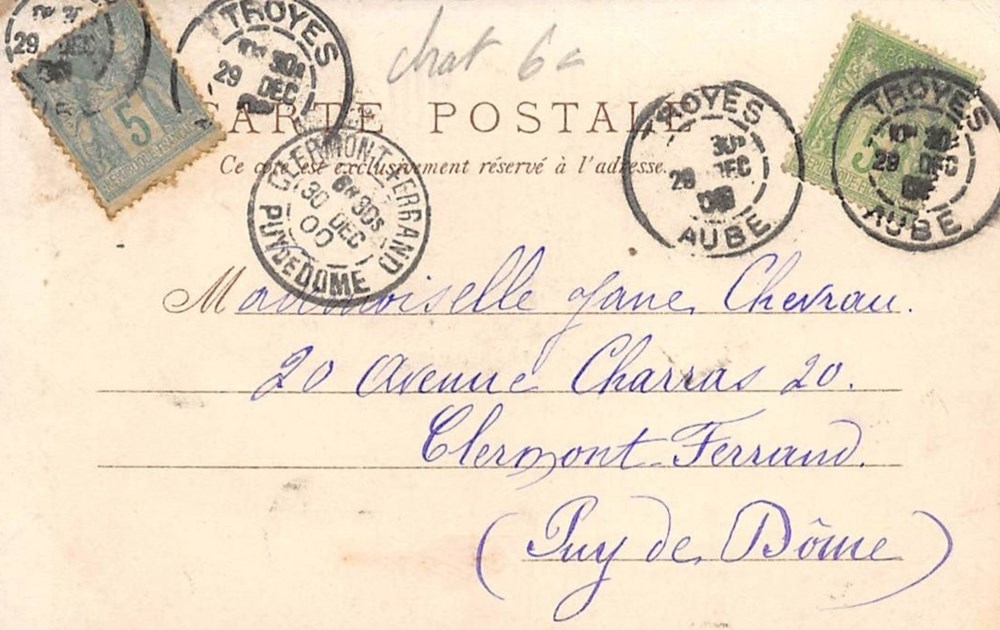 chat 6
CARTE POSTALE
Ce côté est exclusivement réservé à l'adresse.
TROYES
29 DEC
5
TROYES
30
29 DEC
TROYES
30
29 DEC
AUBE
5
TROYES
30
29 DEC
AUBE
CLERMONT-FERRAND
6H 30S
30 DEC
00
PUY DE DOME
Mademoiselle Jane Chevrau.
20 Avenue Charras 20.
Clermont-Ferrand.
(Puy de Dôme)